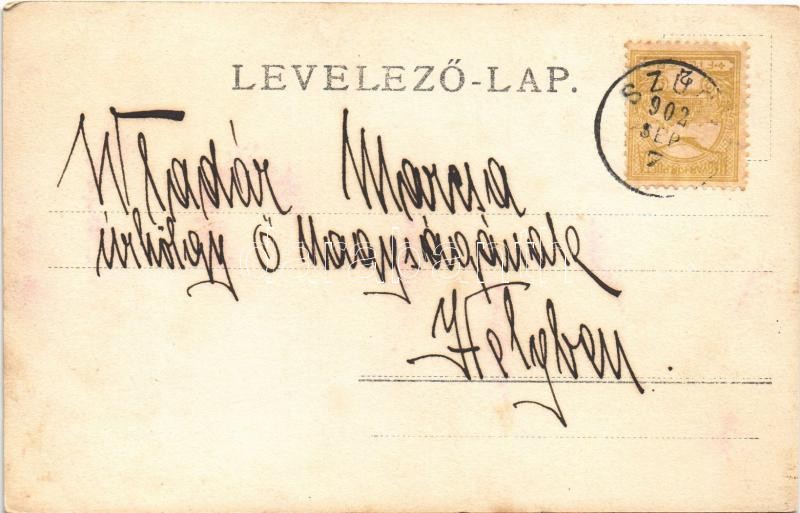 LEVELEZŐ-LAP.
902
SEP
7
Wladár Marcsa
úrhölgy Ő Nagyságának
Helyben.